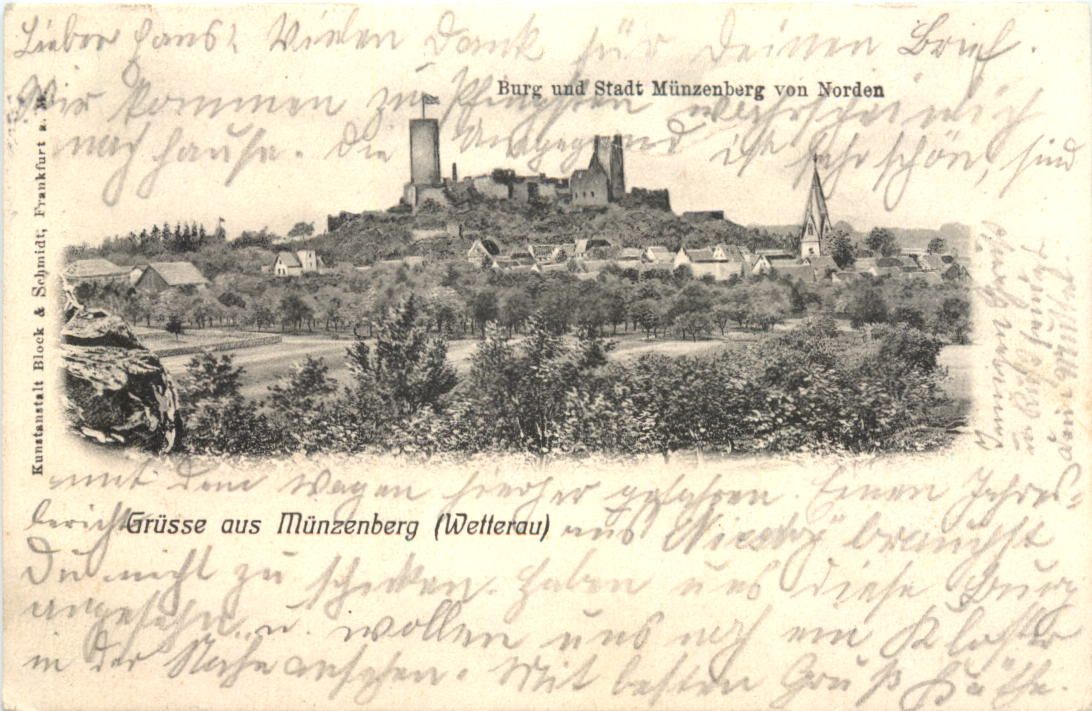 Lieber Hans! Vielen Dank für Deinen Brief.
Wir kommen zu Pfingsten wahrscheinlich
nach Hause. Die Umgegend ist sehr schön, sind
mit dem Wagen hierher gefahren. Einen Jahres-
bericht aus brauchst
Du nicht zu schicken. Haben uns diese Burg
angesehn u. wollen uns noch ein Kloster
in der Nähe ansehen. Mit besten Gruß Käthe.
Burg und Stadt Münzenberg von Norden
Kunstanstalt Block & Schmidt, Frankfurt a. M.
Grüsse aus Münzenberg (Wetterau)